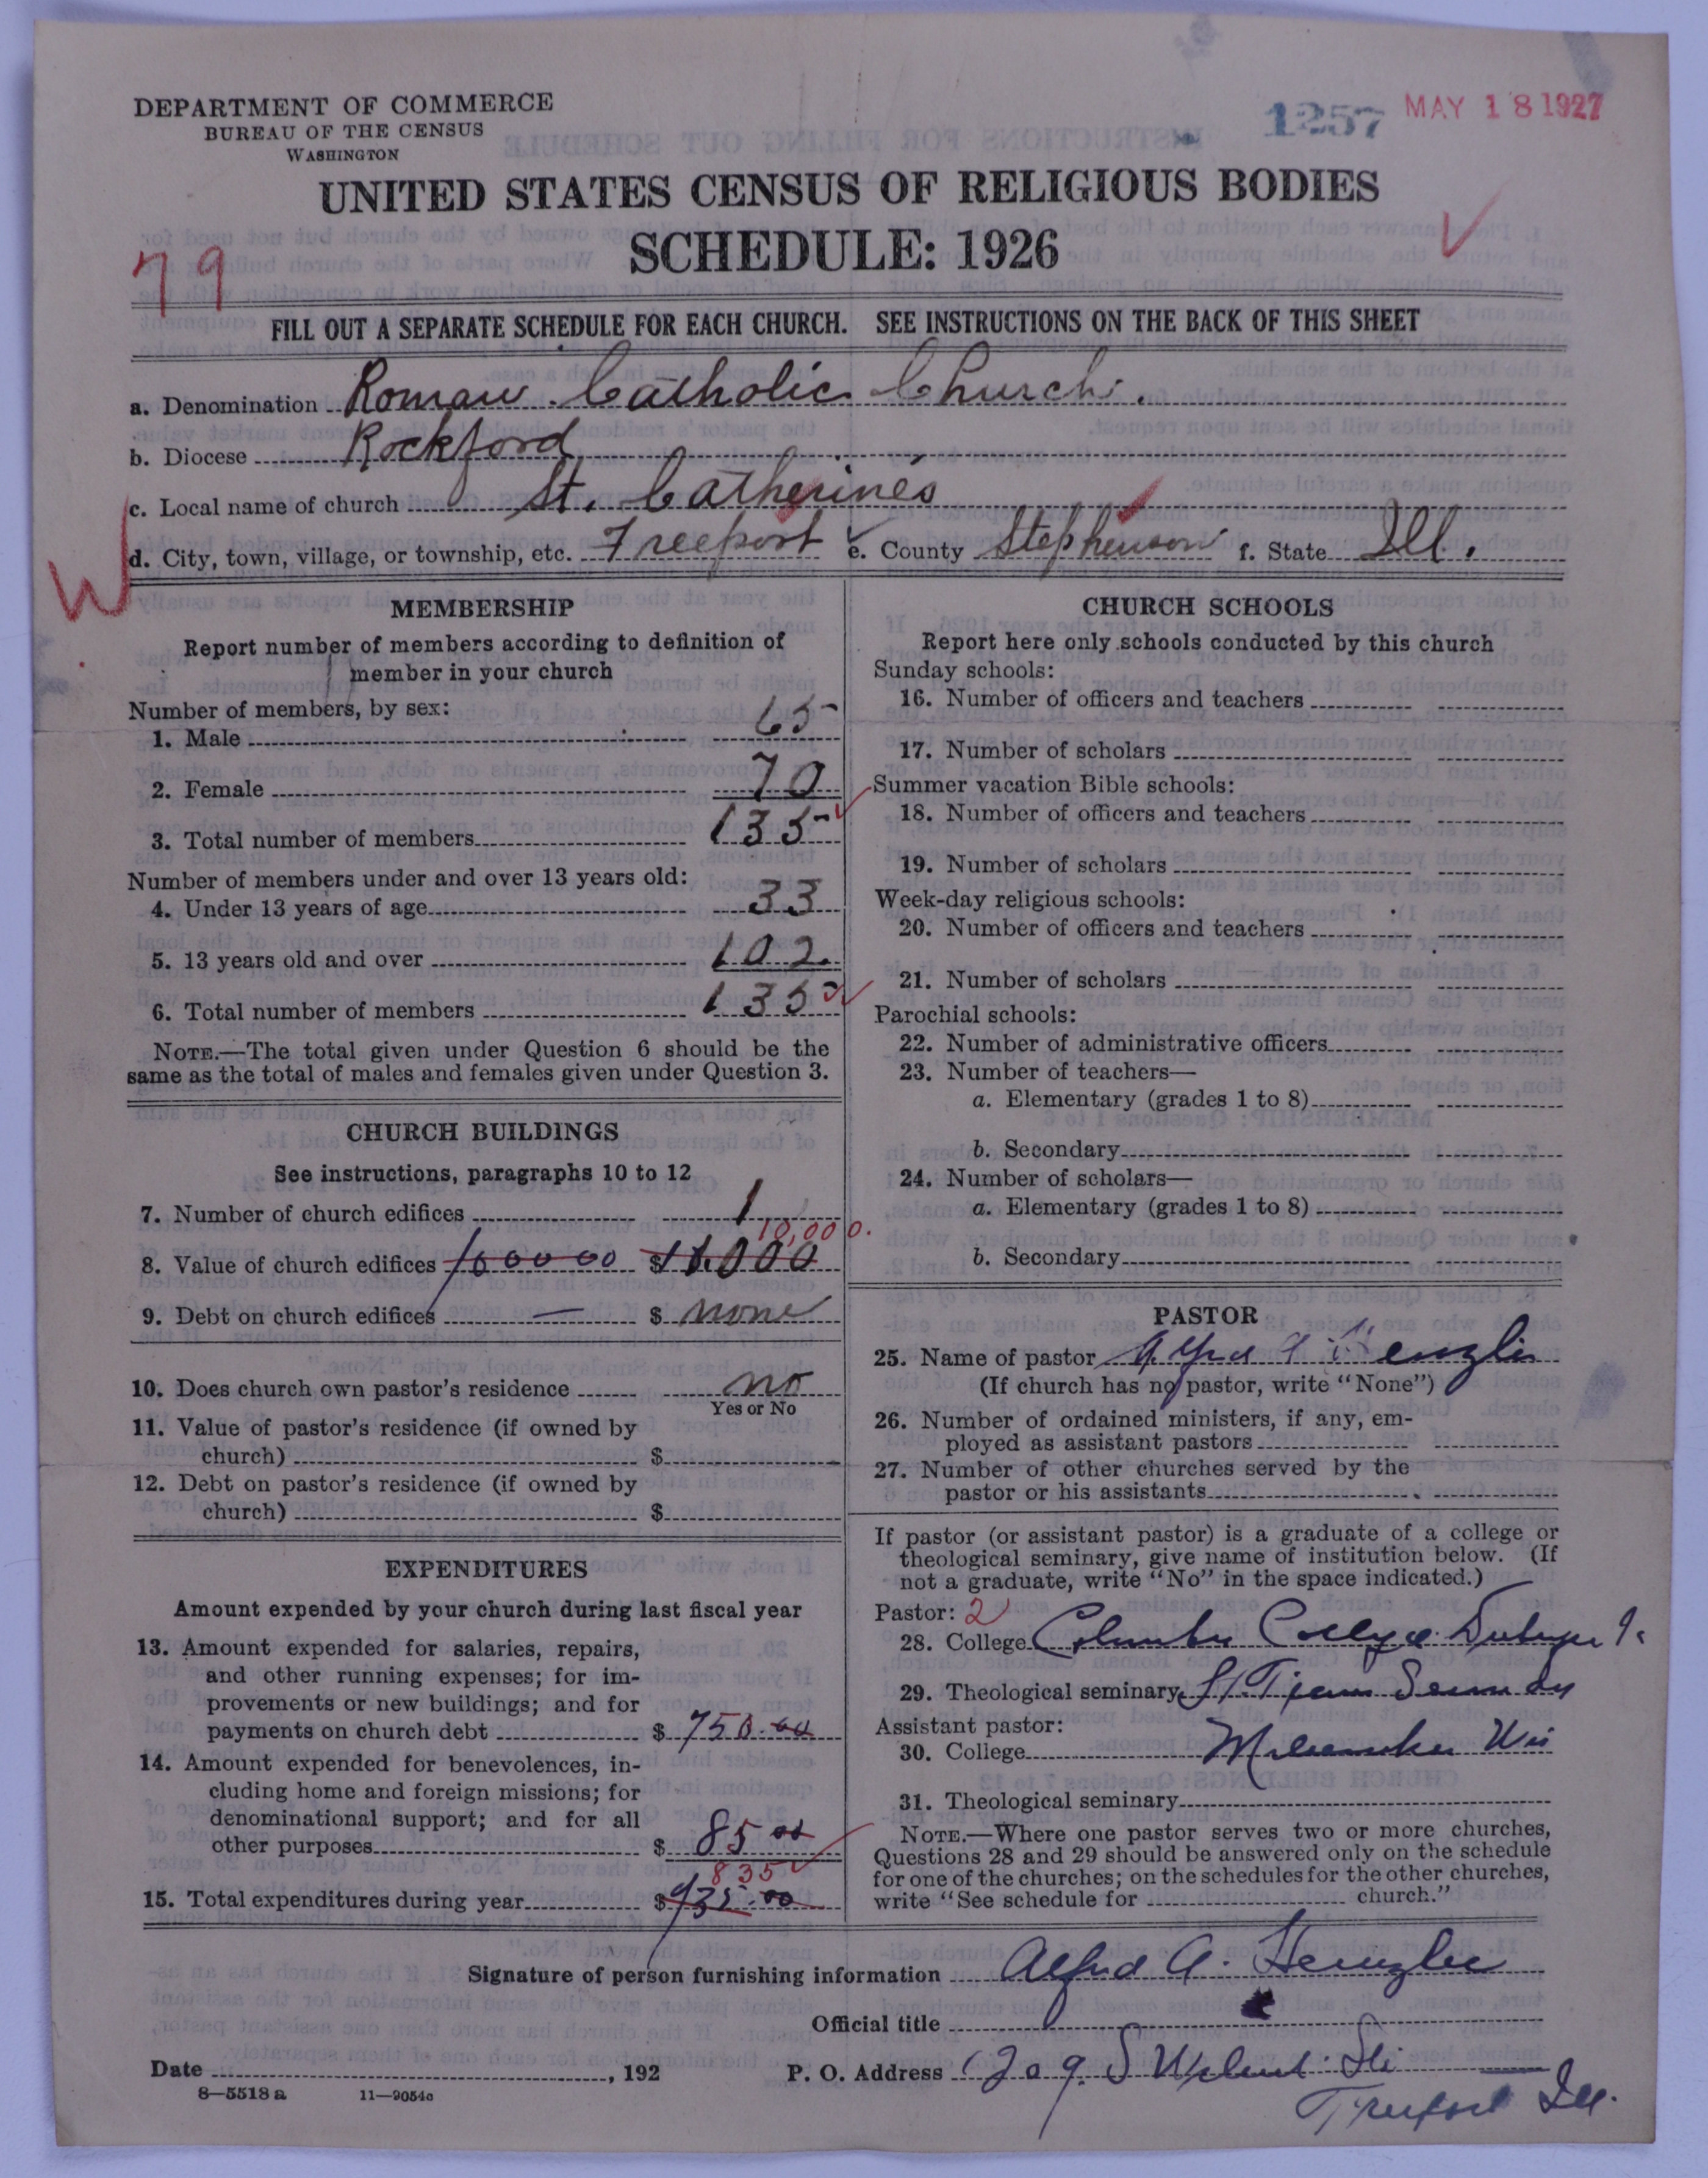 DEPARTMENT OF COMMERCE
BUREAU OF THE CENSUS
WASHINGTON
1257 MAY 18 1927
UNITED STATES CENSUS OF RELIGIOUS BODIES
SCHEDULE: 1926
79
FILL OUT A SEPARATE SCHEDULE FOR EACH CHURCH. SEE INSTRUCTIONS ON THE BACK OF THIS SHEET
a. Denomination Roman Catholic Church.
b. Diocese Rockford
c. Local name of church St. Catherine's
W
d. City, town, village, or township, etc. Freeport e. County Stephenson f. State Ill.
MEMBERSHIP
Report number of members according to definition of
member in your church
Number of members, by sex:
1. Male 65
2. Female 70
3. Total number of members 135
Number of members under and over 13 years old:
4. Under 13 years of age 33
5. 13 years old and over 102.
6. Total number of members 135
NOTE.—The total given under Question 6 should be the
same as the total of males and females given under Question 3.
CHURCH BUILDINGS
See instructions, paragraphs 10 to 12
7. Number of church edifices 1
10,000.
8. Value of church edifices 10000 $ 11.000
9. Debt on church edifices — $ none
10. Does church own pastor's residence no
Yes or No
11. Value of pastor's residence (if owned by
church) $
12. Debt on pastor's residence (if owned by
church) $
EXPENDITURES
Amount expended by your church during last fiscal year
13. Amount expended for salaries, repairs,
and other running expenses; for im-
provements or new buildings; and for
payments on church debt $ 750.00
14. Amount expended for benevolences, in-
cluding home and foreign missions; for
denominational support; and for all
other purposes $ 85 00
835
15. Total expenditures during year $ 935.00
CHURCH SCHOOLS
Report here only schools conducted by this church
Sunday schools:
16. Number of officers and teachers
17. Number of scholars
Summer vacation Bible schools:
18. Number of officers and teachers
19. Number of scholars
Week-day religious schools:
20. Number of officers and teachers
21. Number of scholars
Parochial schools:
22. Number of administrative officers
23. Number of teachers—
a. Elementary (grades 1 to 8)
b. Secondary
24. Number of scholars—
a. Elementary (grades 1 to 8)
b. Secondary
PASTOR
25. Name of pastor
(If church has no pastor, write "None")
26. Number of ordained ministers, if any, em-
ployed as assistant pastors
27. Number of other churches served by the
pastor or his assistants
If pastor (or assistant pastor) is a graduate of a college or
theological seminary, give name of institution below. (If
not a graduate, write "No" in the space indicated.)
Pastor: 2
28. College Columbia College Dubuque Ia
29. Theological seminary St. Seminary
Assistant pastor:
30. College Milwaukee Wis
31. Theological seminary
NOTE.—Where one pastor serves two or more churches,
Questions 28 and 29 should be answered only on the schedule
for one of the churches; on the schedules for the other churches,
write "See schedule for church."
Signature of person furnishing information Alfred A. Heinzler
Official title
Date , 192 P. O. Address 1209. S Walnut St
8—5518 a 11—9054c
Freeport Ill.